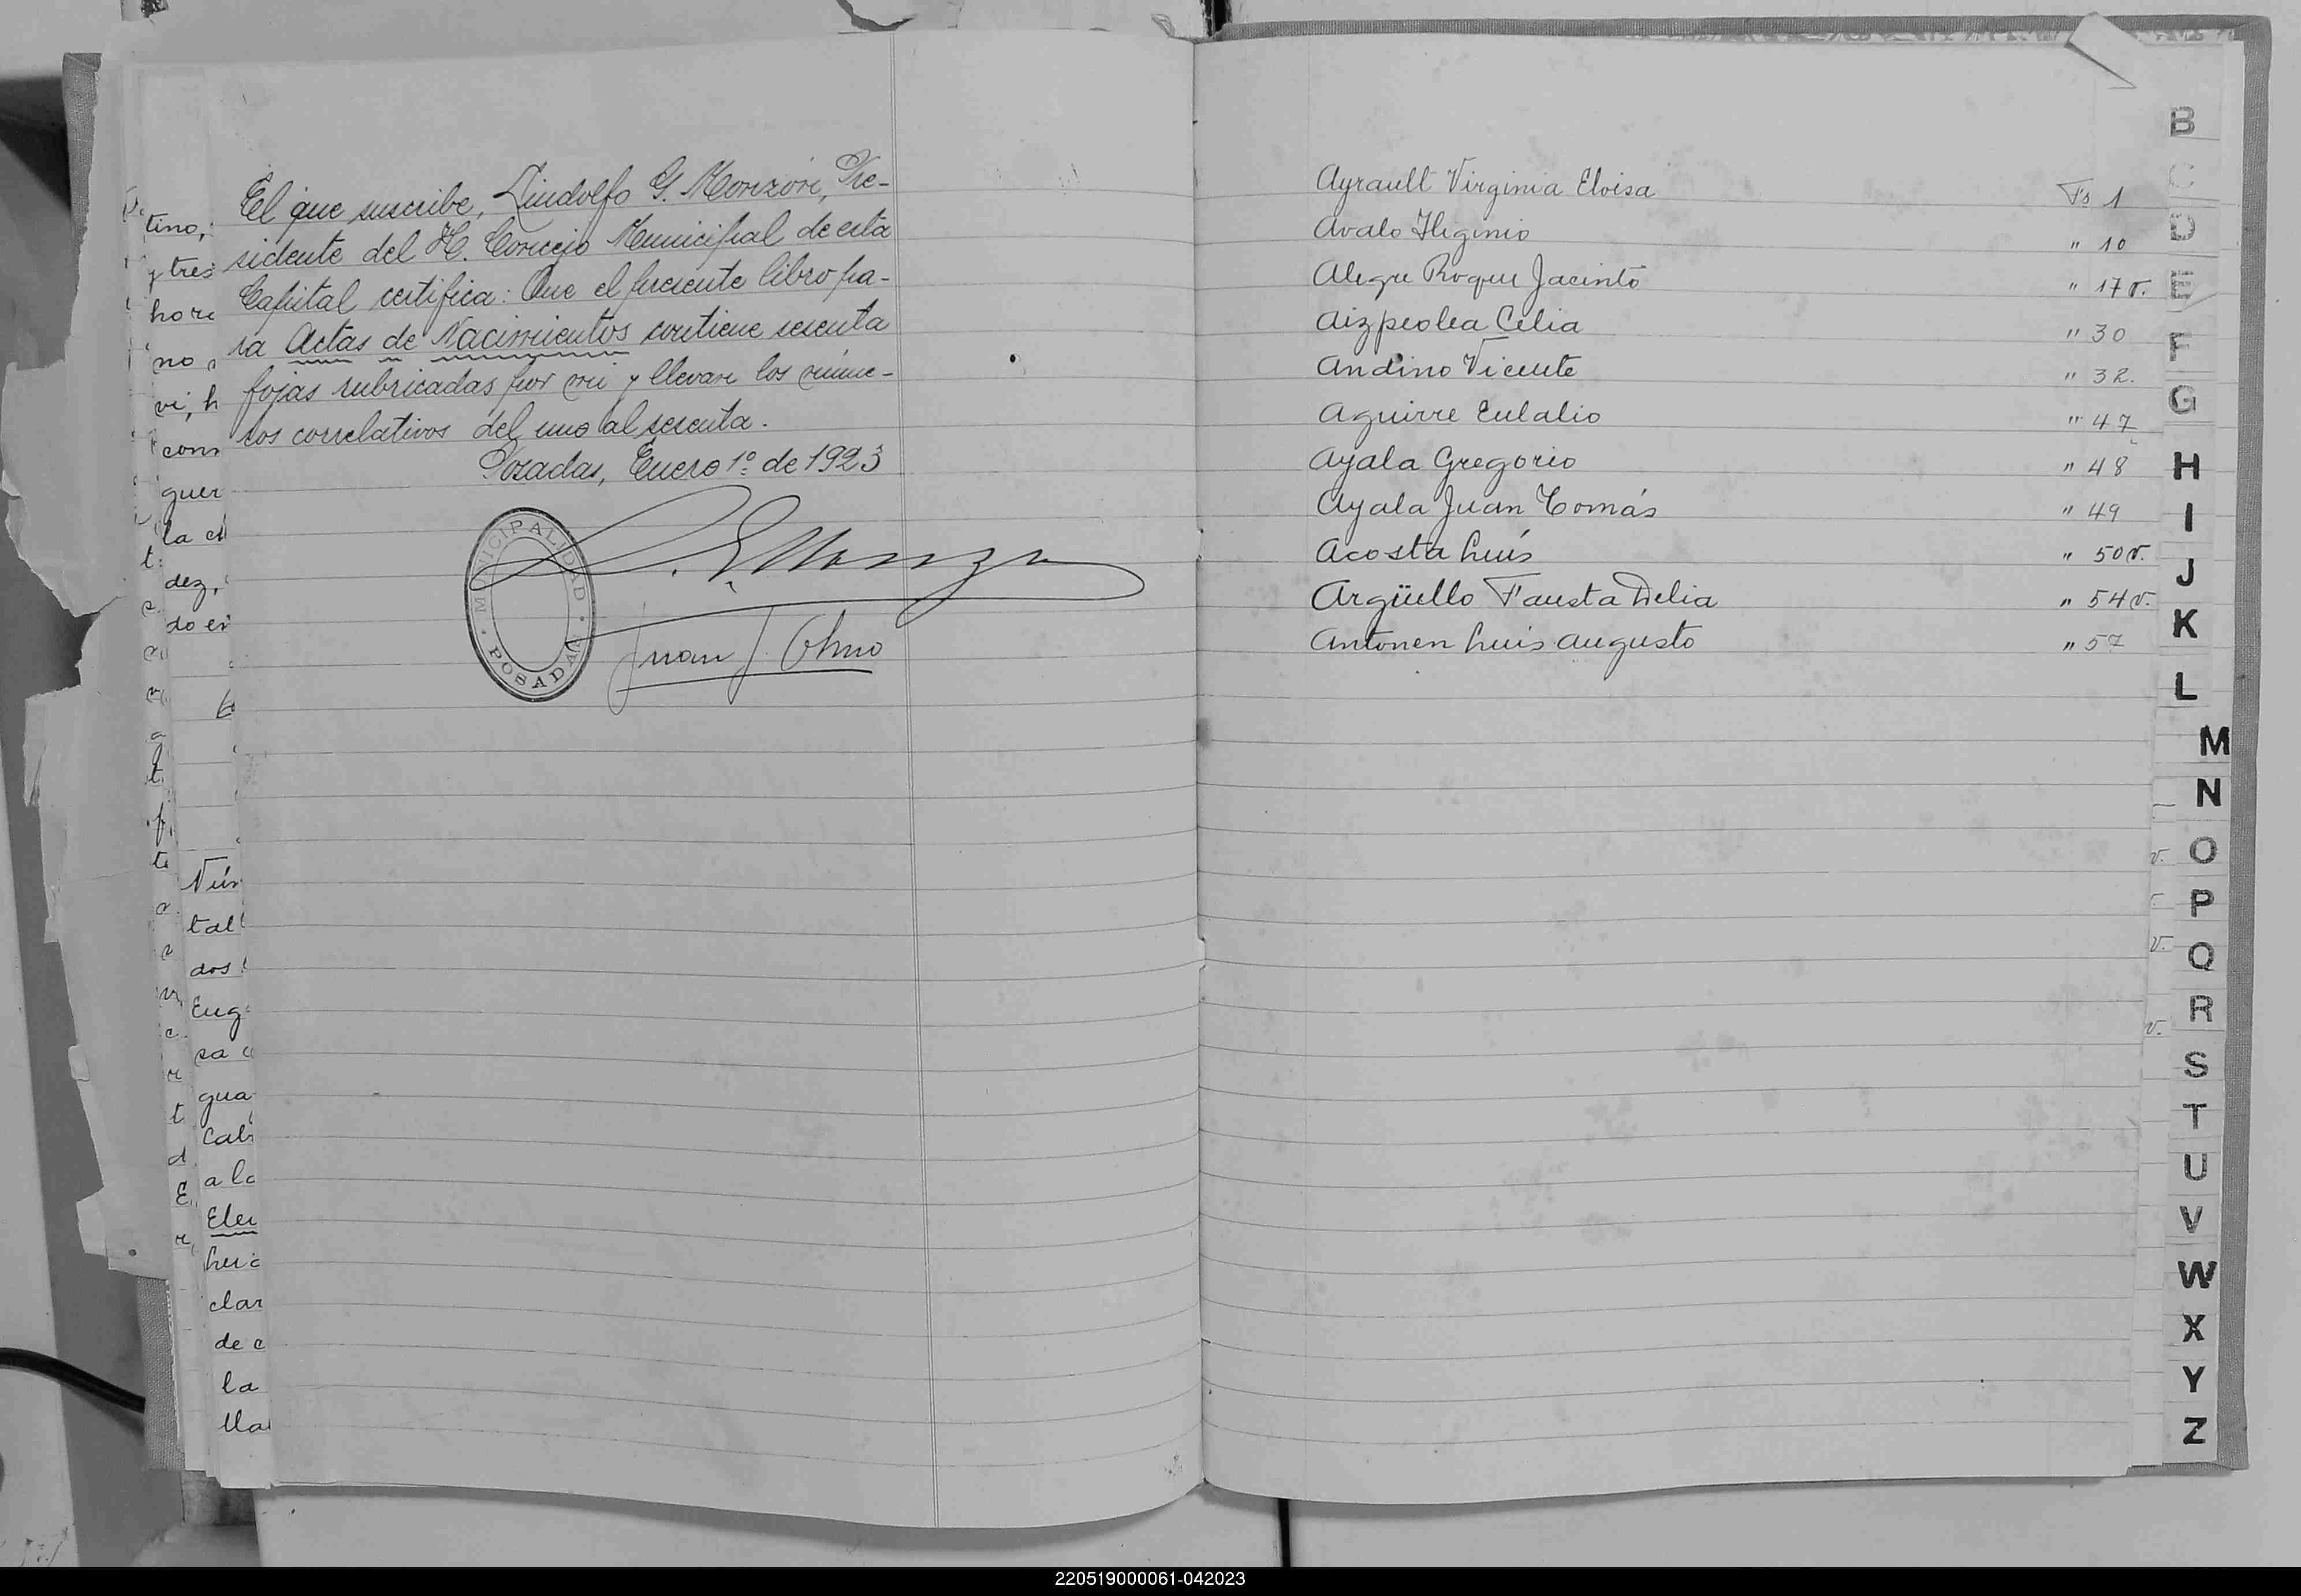 El que suscribe, Lindolfo G. Monzón, Pre-
sidente del H. Concejo Municipal de esta
Capital certifica: Que el presente libro pa-
ra Actas de Nacimientos contiene sesenta
fojas rubricadas por mi y llevan los núme-
ros correlativos del uno al sesenta.
Posadas, Enero 1º de 1923
MUNICIPALIDAD
POSADAS
Juan J.
tino,
y tres
no
vi, h
com
guer
la
dez,
do
Nún
tal
dos
Eug
sa
gua
Cab
a la
Ele
clar
de
la
lla
Ayrault Virginia Eloisa Fs 1
Avalo Higinio " 10
Alegre Roque Jacinto " 17 v.
Aizpeolea Celia " 30
Andino Vicente " 32.
Aguirre Eulalio " 47
Ayala Gregorio " 48
Ayala Juan Tomás " 49
Acosta Luís " 50 v.
Argüello Fausta Delia " 54 v.
Antonen Luis Augusto " 57
B
C
D
E
F
G
H
I
J
K
L
M
N
O
P
Q
R
S
T
U
V
W
X
Y
Z
220519000061-042023